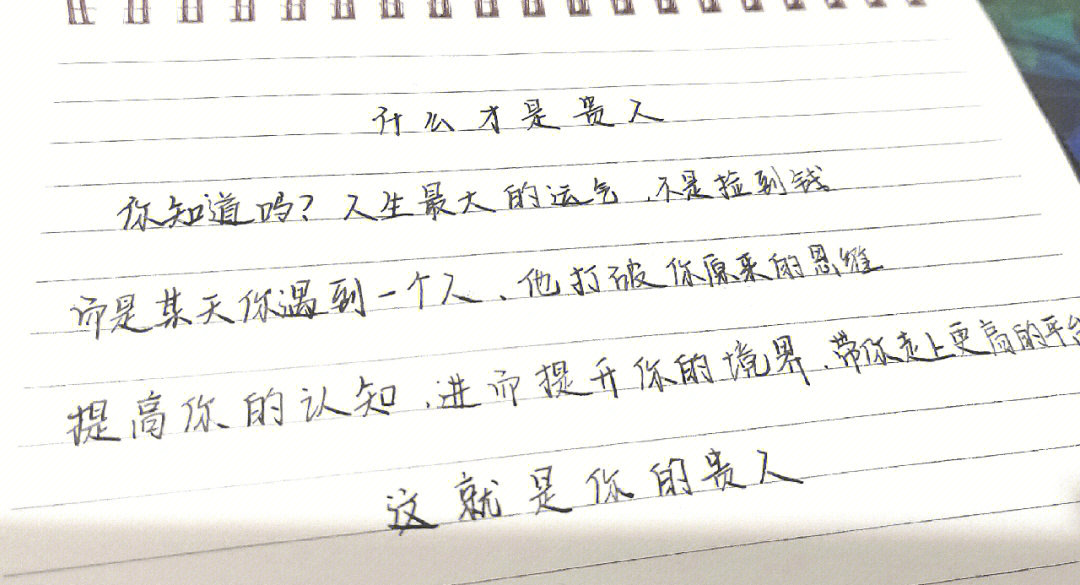 什么才是贵人
你知道吗?人生最大的运气、不是捡到钱
而是某天你遇到一个人、他打破你原来的思维
提高你的认知、进而提升你的境界、带你走上更高的平台
这就是你的贵人